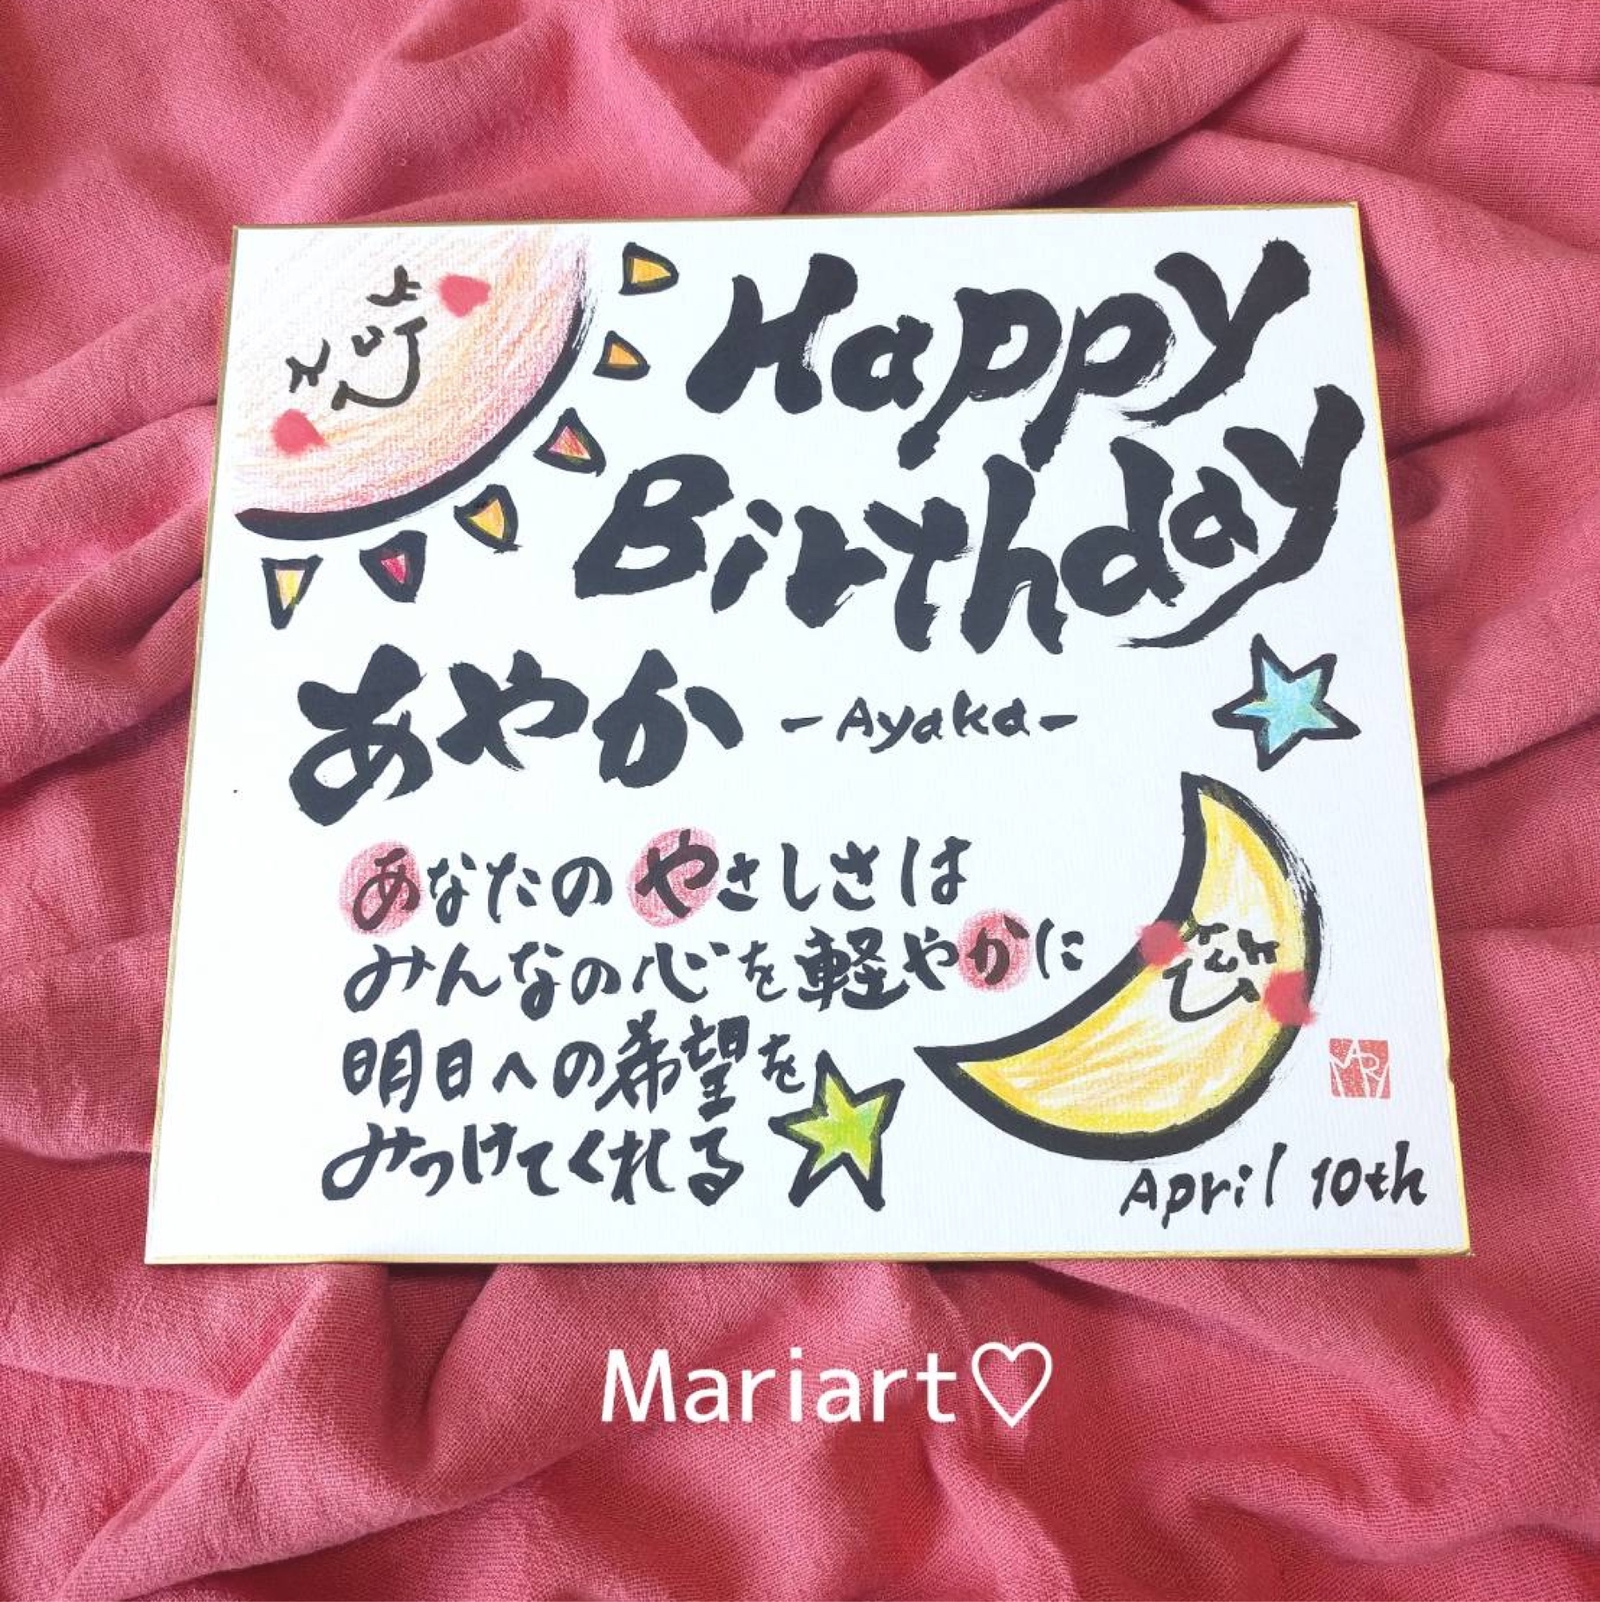 Happy
Birthday
あやか -Ayaka-
あなたのやさしさは
みんなの心を軽やかに
明日への希望を
みつけてくれる
MARY
April 10th
Mariart♡